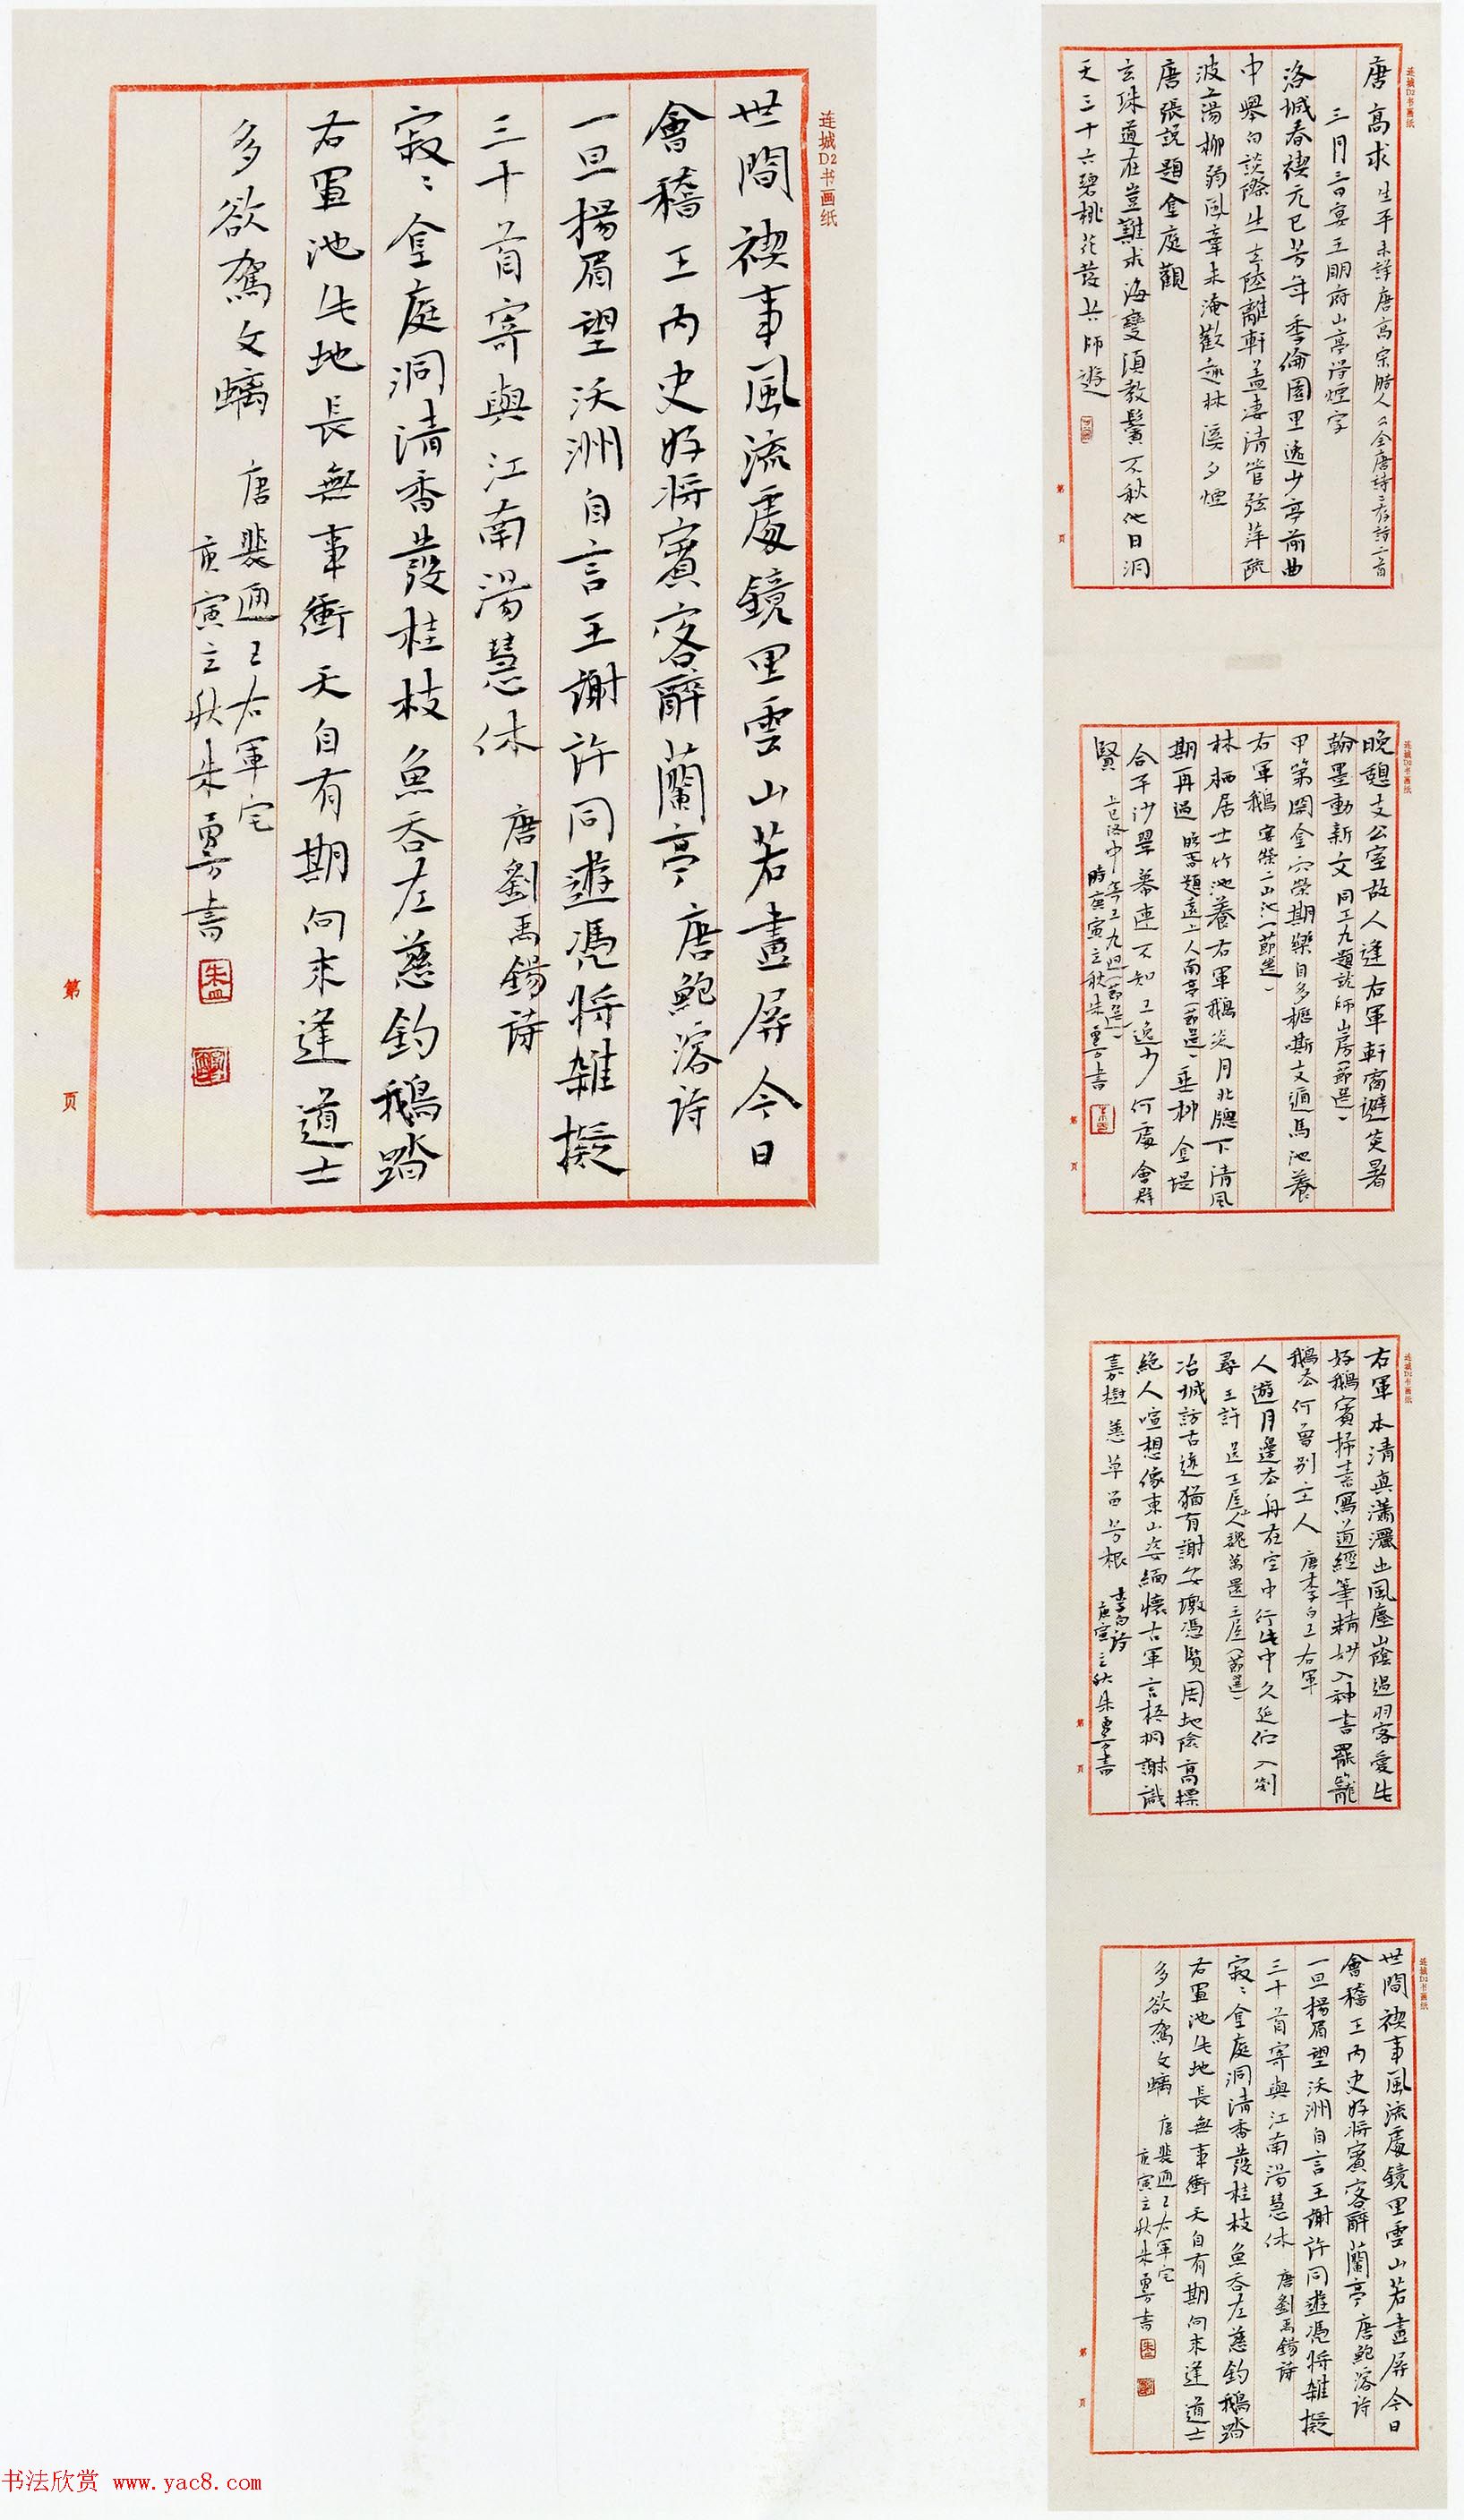 连城D2书画纸
世間禊事風流處鏡里雲山若畫屏今日
會稽王內史好将賓客醉蘭亭 唐鮑溶詩
一旦揚眉望沃洲自言王謝許同遊憑将雜擬
三十首寄與江南湯慧休 唐劉禹錫詩
寂〻金庭洞清香發桂枝魚吞左慈釣鵝踏
右軍池此地長無事衝天自有期向來逢道士
多欲駕文螭 唐裴通王右軍宅
庚寅立秋朱勇方書
第 页
连城D2书画纸
唐高求 生平未詳唐高宗時人 全唐詩 存詩一首
三月三日宴王明府山亭得煙字
洛城春禊元巳芳年季倫園里逸少亭前曲
中舉白談際生玄陸離軒盖凄清管弦萍疏
波上湯柳弱風牽未淹歡趣林溪夕煙
唐張説題金庭觀
玄珠道在豈難求海變須教鬢不秋他日洞
天三十六碧桃花發共師遊
第 页
连城D2书画纸
晚憩支公室故人逢右軍軒窗避炎暑
翰墨動新文 同王九題就師山房(節選)
甲第開金穴榮期樂自多櫪嘶支遁馬池養
右軍鵝 宴榮二山池(節選)
林栖居士竹池養右軍鵝炎月北牖下清風
期再過 晚春題遠上人南亭(節選) 垂柳金堤
合平沙翠幕連不知王逸少何處會群
賢 上巳洛中寄王九迥(節選)
時庚寅立秋朱勇方書
第 页
连城D2书画纸
右軍本清真瀟灑出風塵山陰過羽客愛此
好鵝賓掃素寫道經筆精妙入神書罷籠
鵝去何曾别主人 唐李白王右軍
人遊月邊去舟在空中行此中久延佇入剡
尋王許 送王屋山人魏萬還王屋(節選)
冶城訪古迹猶有謝安墩憑覽周地險高標
絶人喧想像東山姿緬懷右軍言梧桐識
嘉樹蕙草留芳根 李白詩
庚寅立秋朱勇方書
第 页
连城D2书画纸
世間禊事風流處鏡里雲山若畫屏今日
會稽王內史好将賓客醉蘭亭 唐鮑溶詩
一旦揚眉望沃洲自言王謝許同遊憑将雜擬
三十首寄與江南湯慧休 唐劉禹錫詩
寂〻金庭洞清香發桂枝魚吞左慈釣鵝踏
右軍池此地長無事衝天自有期向來逢道士
多欲駕文螭 唐裴通王右軍宅
庚寅立秋朱勇方書
第 页
书法欣赏 www.yac8.com